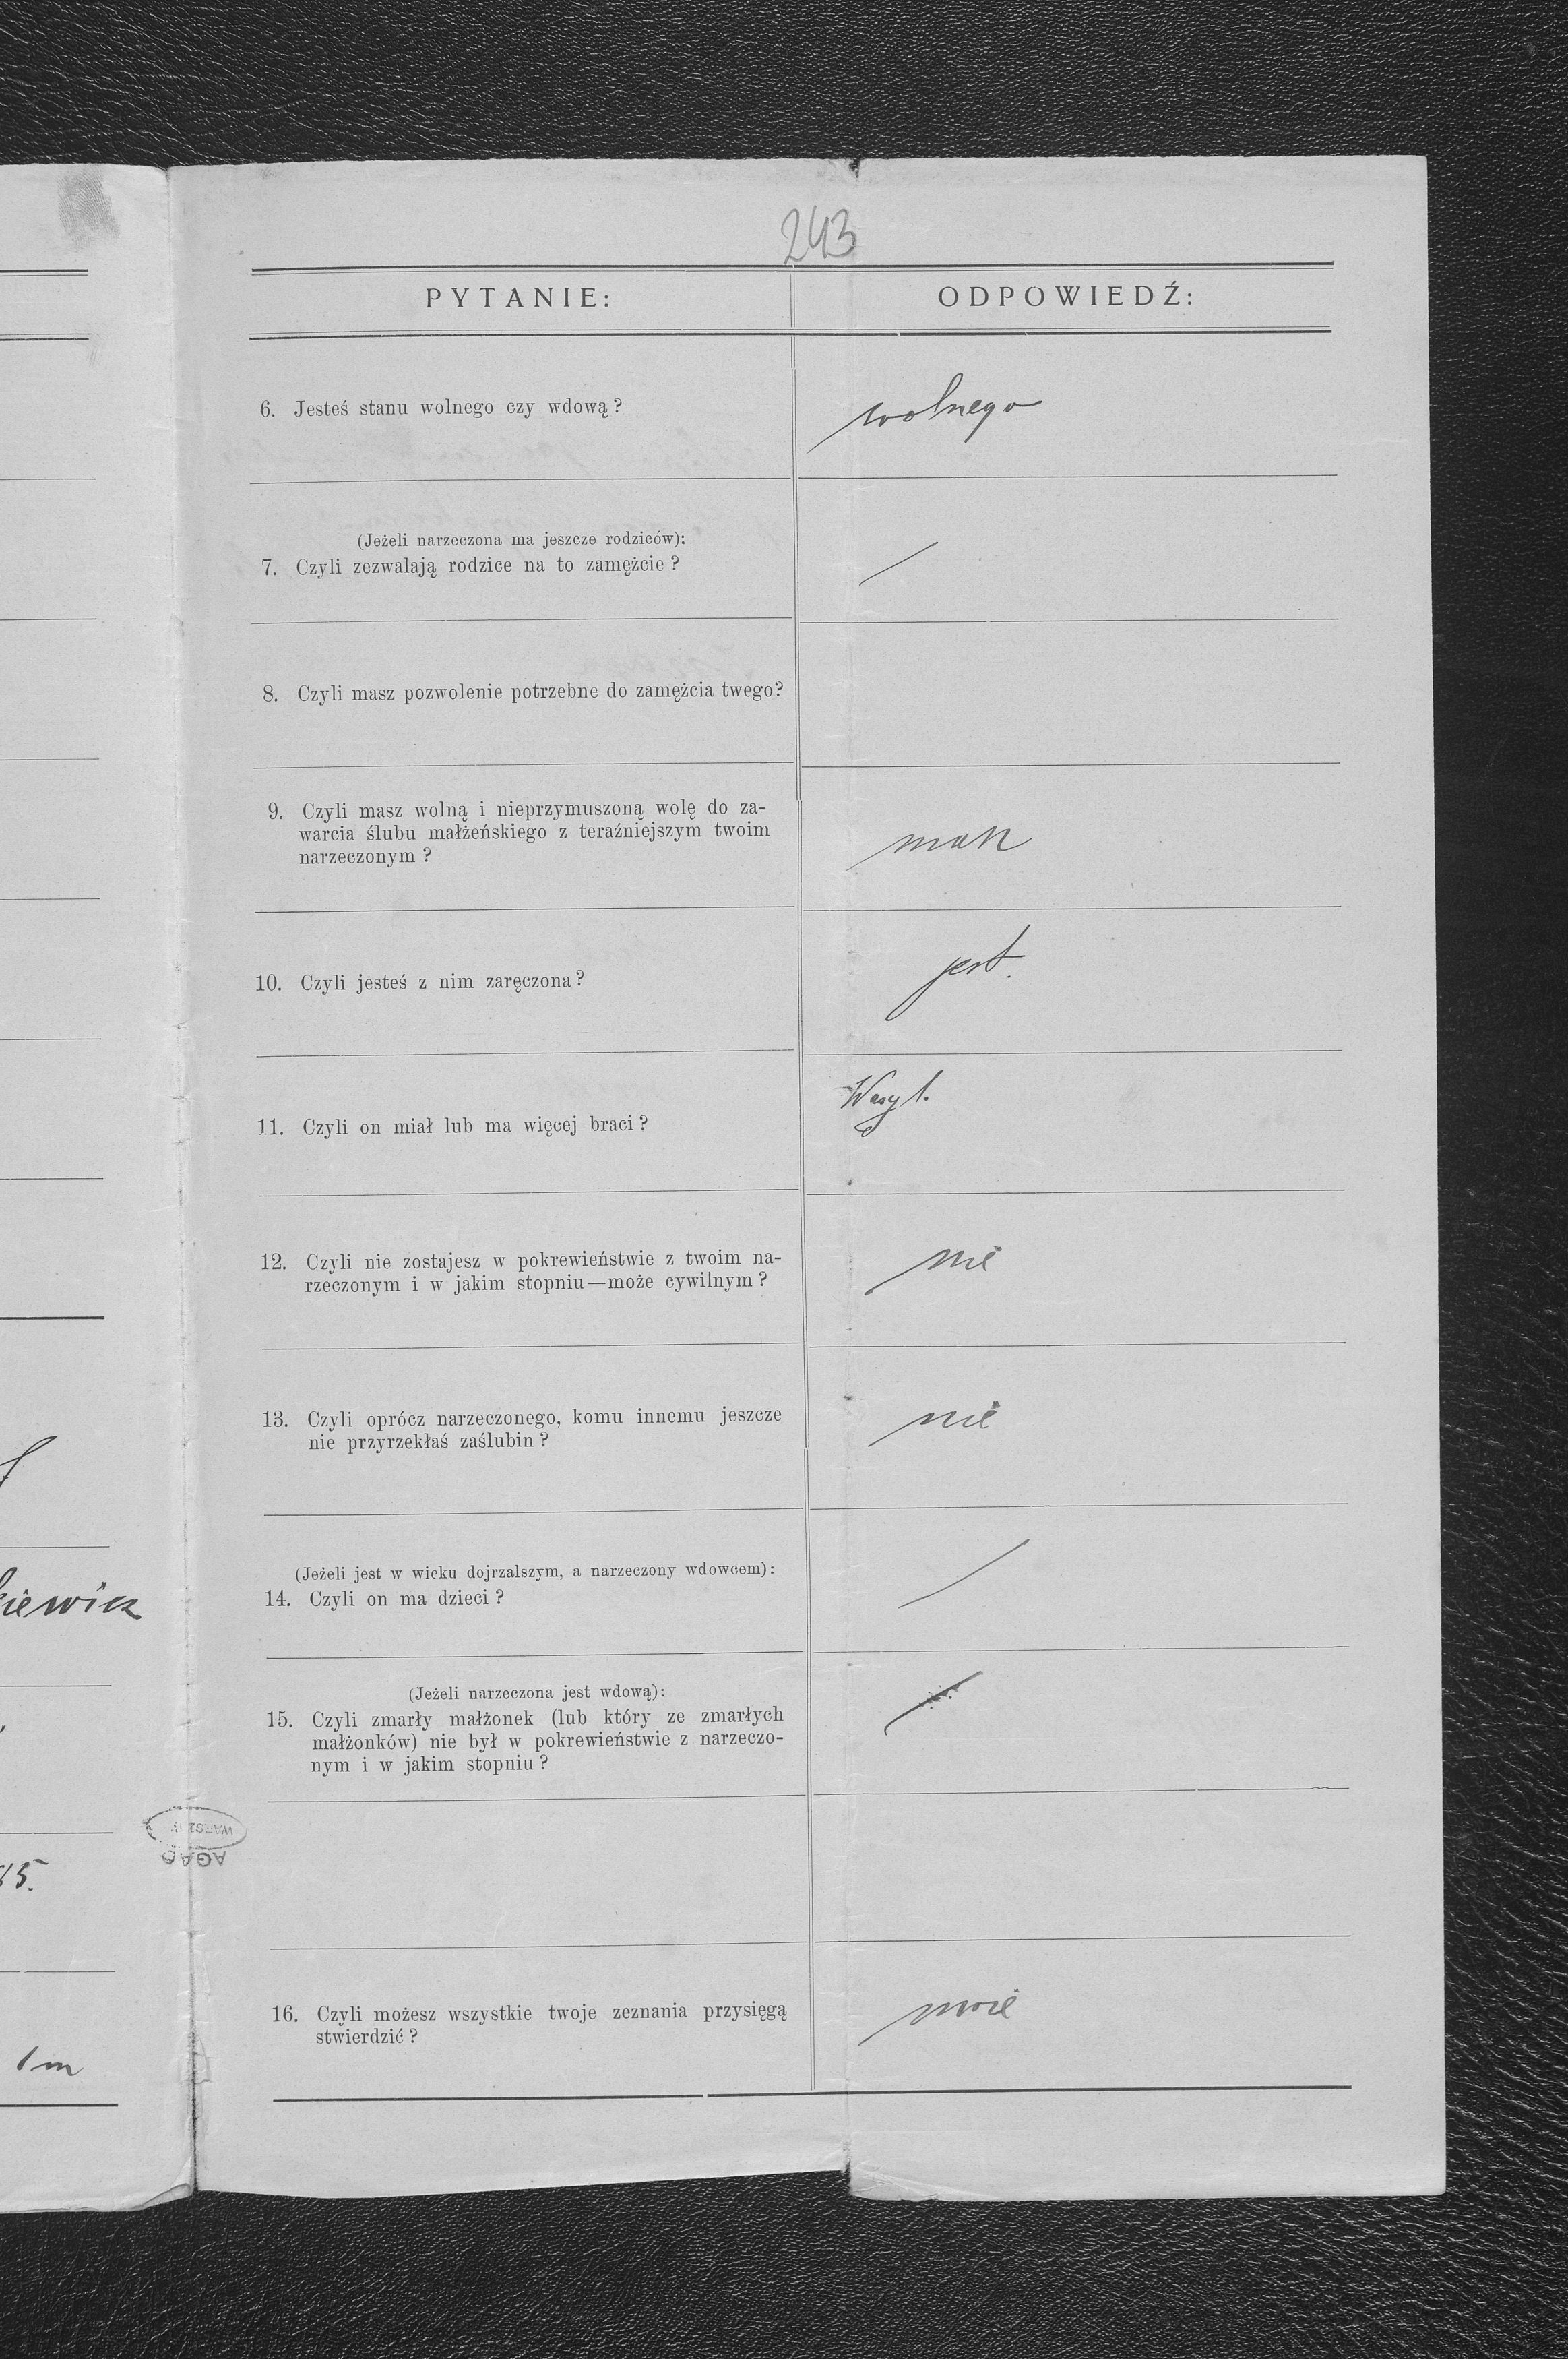 243
PYTANIE: ODPOWIEDŹ:
6. Jesteś stanu wolnego czy wdową? wolnego
(Jeżeli narzeczona ma jeszcze rodziców):
7. Czyli zezwalają rodzice na to zamęźcie?
8. Czyli masz pozwolenie potrzebne do zamęźcia twego?
9. Czyli masz wolną i nieprzymuszoną wolę do za-
warcia ślubu małżeńskiego z teraźniejszym twoim
narzeczonym?
10. Czyli jesteś z nim zaręczona? jest.
11. Czyli on miał lub ma więcej braci? Wasyl.
12. Czyli nie zostajesz w pokrewieństwie z twoim na-
rzeczonym i w jakim stopniu—może cywilnym?
nie
13. Czyli oprócz narzeczonego, komu innemu jeszcze
nie przyrzekłaś zaślubin?
nie
(Jeżeli jest w wieku dojrzalszym, a narzeczony wdowcem):
14. Czyli on ma dzieci?
(Jeżeli narzeczona jest wdową):
15. Czyli zmarły małżonek (lub który ze zmarłych
małżonków) nie był w pokrewieństwie z narzeczo-
nym i w jakim stopniu?
16. Czyli możesz wszystkie twoje zeznania przysięgą
stwierdzić?
kiewicz
85.
1m
AGAD
WARSZAWA